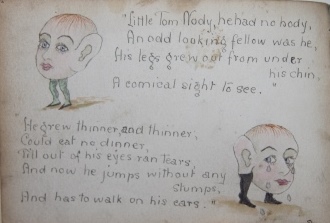 "Little Tom Nody, he had no body,
An odd looking fellow was he,
His legs grew out from under
his chin,
A comical sight to see."
He grew thinner, and thinner,
Could eat no dinner,
Till out of his eyes ran tears,
And now he jumps without any
stumps,
And has to walk on his ears."